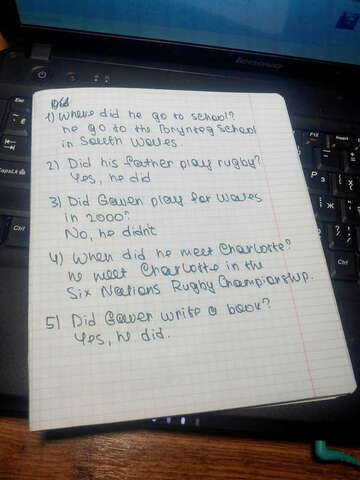 lenovo
Did
1) Where did he go to school?
he go to the Brynteg School
in South Waves.
2) Did his father play rugby?
Yes, he did
3) Did Gaven play for Waves
in 2000?
No, he didn't
4) When did he meet Charlotte?
he meet Charlotte in the
Six Nations Rugby Championship.
5) Did Gaven write a book?
Yes, he did.
Esc
CapsLk
Ctrl
Alt
Ctrl